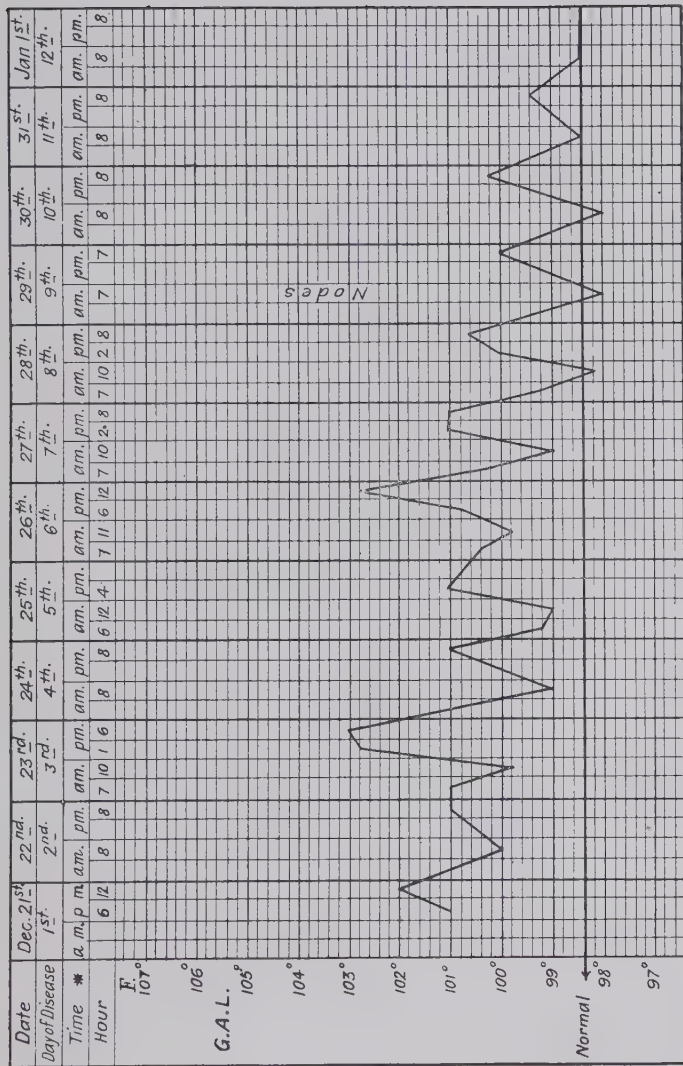 Date Dec. 21st. 22nd. 23rd. 24th. 25th. 26th. 27th. 28th. 29th. 30th. 31st. Jan 1st.
Day of Disease 1st. 2nd. 3rd. 4th. 5th. 6th. 7th. 8th. 9th. 10th. 11th. 12th.
Time * a m. p m. am. pm. am. pm. am. pm. am. pm. am. pm. am. pm. am. pm. am. pm. am. pm. am. pm. am. pm.
Hour 6 12 8 8 7 10 1 6 8 8 6 12 4 7 11 6 12 7 10 2 8 7 10 2 8 7 7 8 8 8 8 8 8
F.
107°
106°
G.A.L. 105°
104°
Nodes
103°
102°
101°
100°
99°
Normal
98°
97°